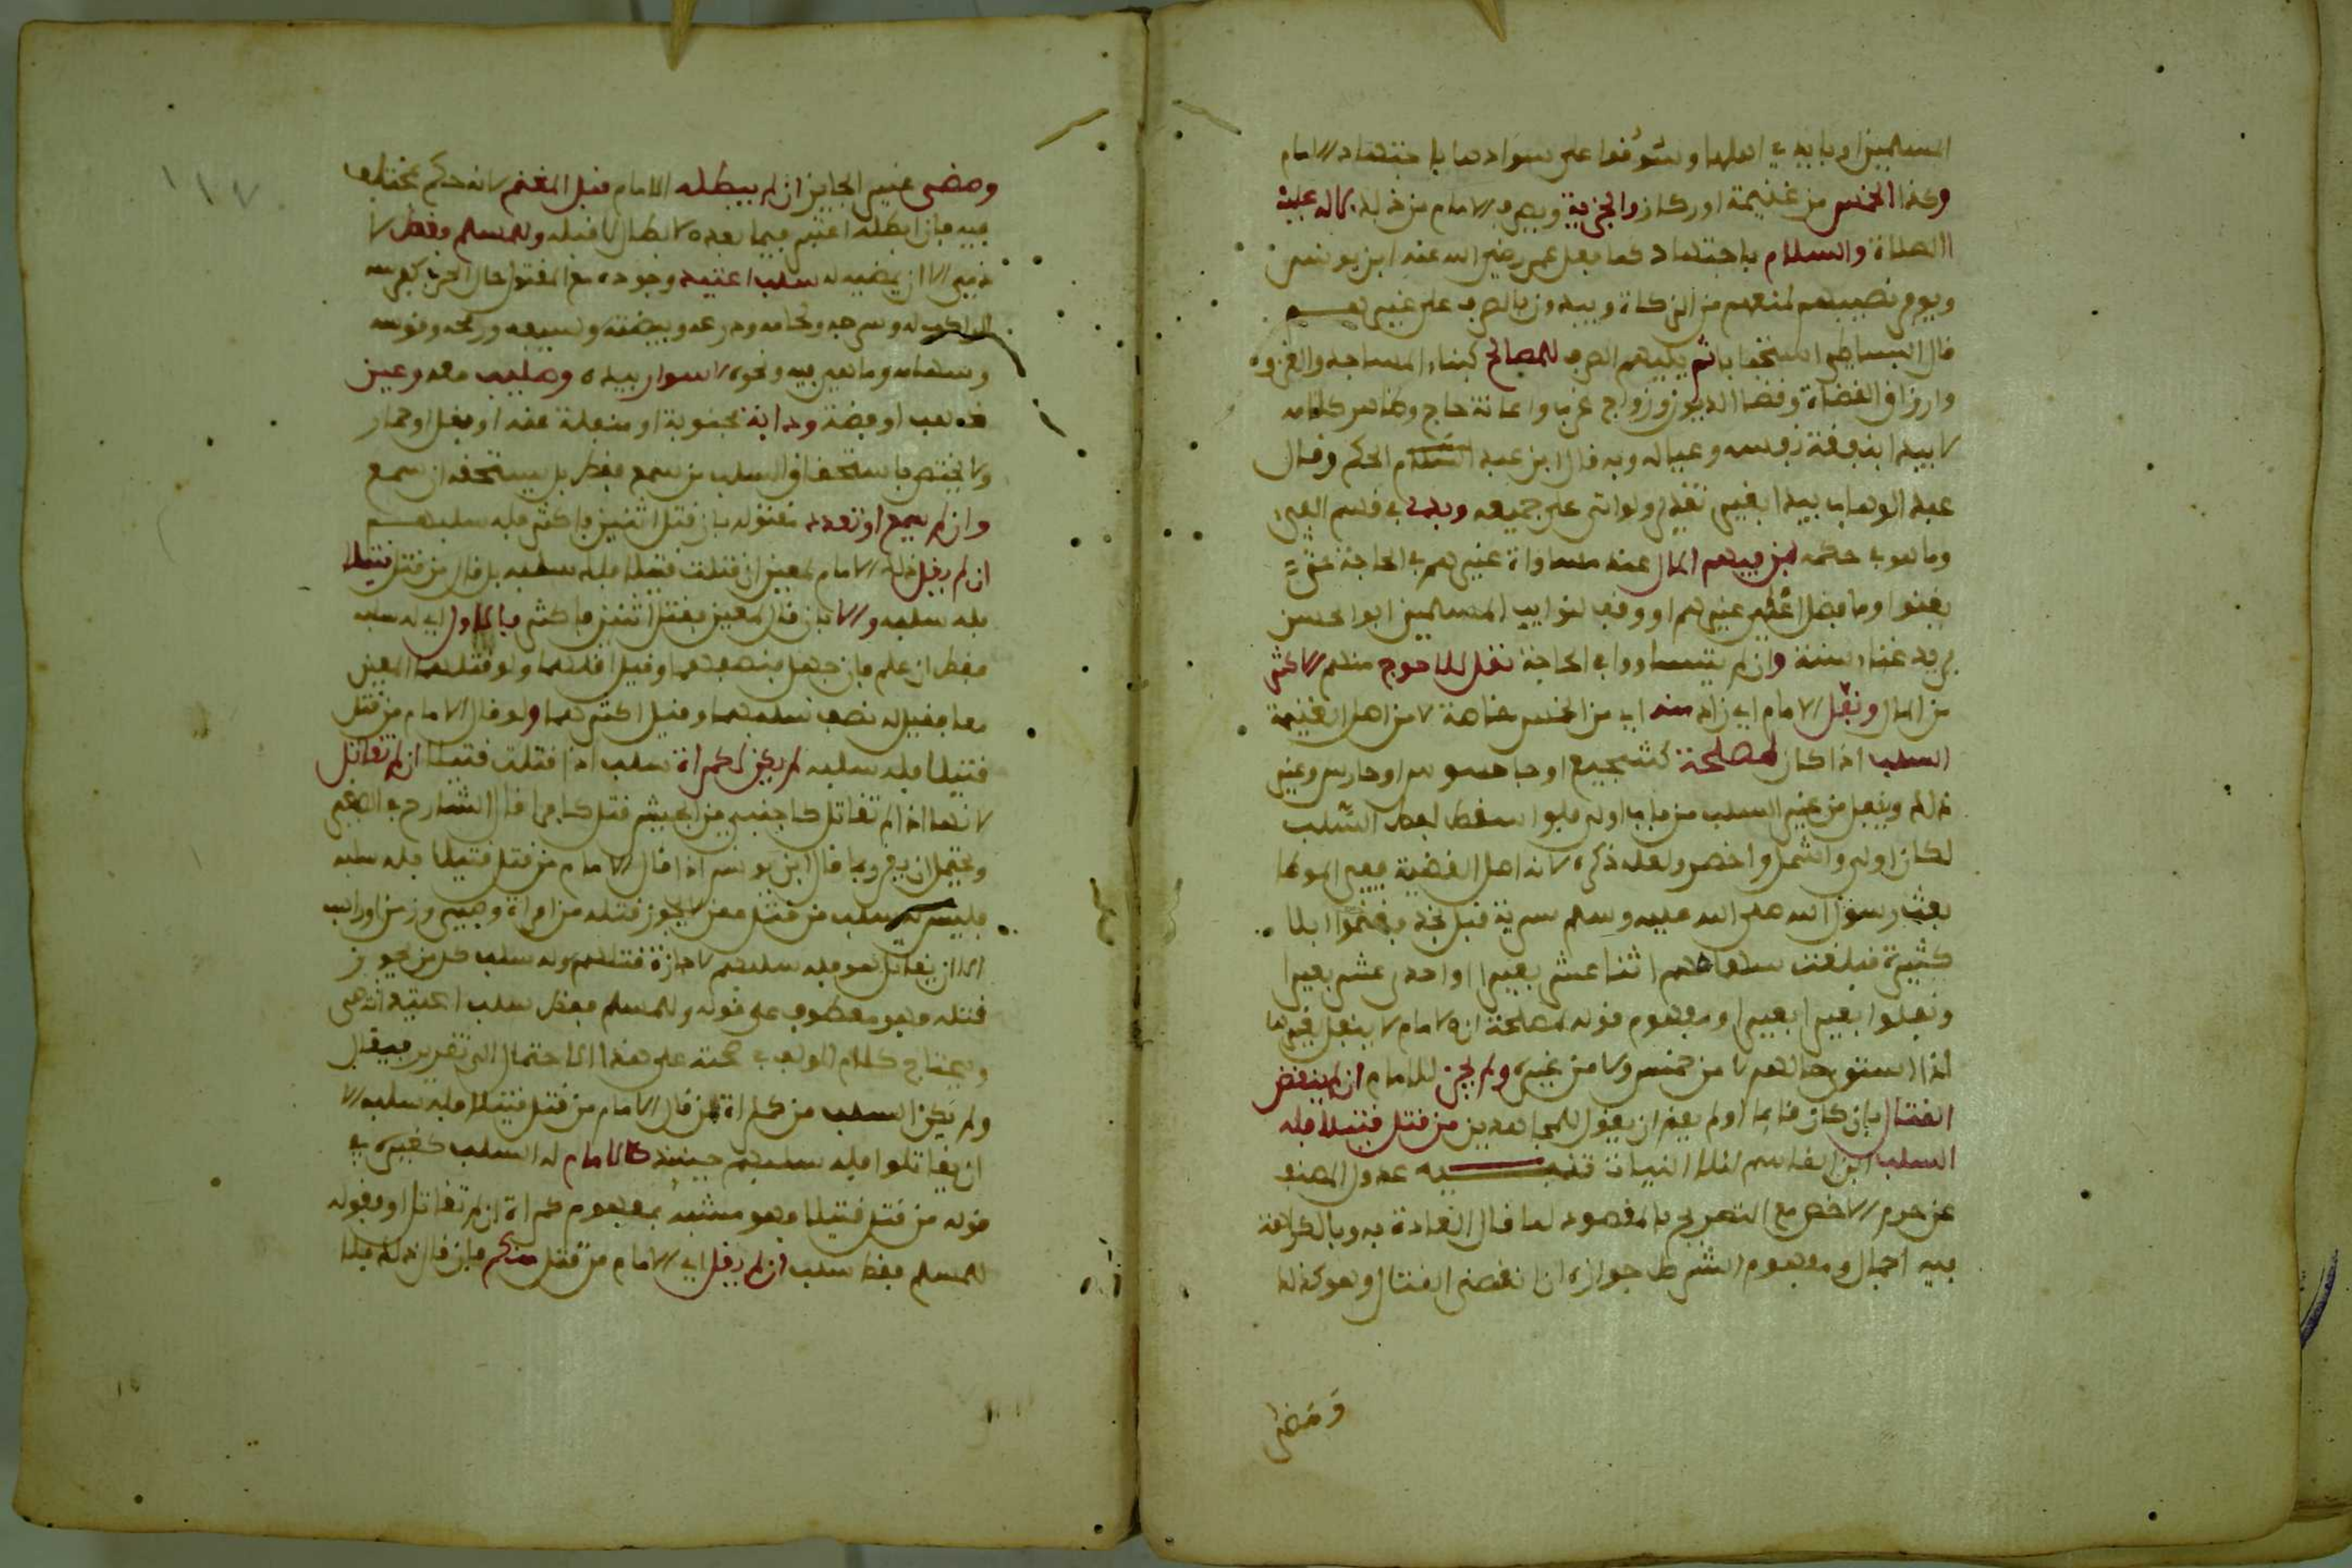 المسلمين او بايدي اهلها ونوفوا على سوادها باجتهاد الامام
وكذا الخمس من غنيمة او ركاز والجزية ويصرف الامام من ذلك لاله عليه
الصلاة والسلام باجتهاد كما فعل عمر رضي الله عنه ابن يونس
ويوفر نصيبهم لمنعهم من الزكاة ويبدون بالصرف على غيرهم
قال البساطي استحبابا ثم يليهم الصرف للمصالح كبناء المساجد والغزو
وارزاق القضاة وقضا الديون وزواج عزب واعانة حاج وظاهر كلامه
لا يبدا بنفقة نفسه وعياله وبه قال ابن عبد الحكم وقال
عبد الوهاب يبدا بغير تقدير ولو اتى على جميعه وبدئ في قسم الفيء
وما هو في حكمه لمن فيهم المال عند مساواة غيرهم في الحاجة حتى
يغنوا وما فضل اعطي غيرهم او وقف لنوايب المسلمين ابو الحسن
يريد غناء سنة وان لم يتساووا في الحاجة نقل للاحوج منهم الاكثر
من المال ونفل الامام اي زاد منه اي من الخمس خاصة لا من اصل الغنيمة
السلب اذا كان لمصلحة كتشجيع او جاسوس او حارس وغير
ذلك وينفل من غير السلب من باب اولى فلو اسقط لفظ السلب
لكان اولى واشمل واخصر ولعله ذكره لانه اصل القضية ففي الموطا
بعث رسول الله صلى الله عليه وسلم سرية قبل نجد فغنموا ابلا
كثيرة فبلغت سهامهم اثنا عشر بعيرا او احدى عشر بعيرا
ونفلوا بعيرا بعيرا ومفهوم قوله لمصلحة ان الامام لا ينفل لغيرها
اذا استوى حالهم لا من خمس ولا من غيره ولم يجز للامام ان لم ينقض
القتال بان كان قايما او لم يقم ان يقول للمجاهدين من قتل قتيلا فله
السلب ابن القاسم لفساد النيات تنبيه عدول المصنف
عن حرم الاخصر مع التصريح بالمقصود لما قال القادة به وبالكراهة
فيه اجمال ومفهوم الشرط جوازه ان انقضى القتال وهو كذلك
ومضى
ومضى غير الجايز ان لم يبطله الامام قبل المغنم لانه حكم بمختلف
فيه فان ابطله اعتبر فيما بعده لا ابطال ما قبله وللمسلم فقط لا
ذمي الا ان يمضيه له سلب اعتيد وجوده مع المقتول حال الحرب كفرسه
الراكب له وسرجه ولجامه ودرعه وبيضته وسيفه ورمحه وقوسه
وسلاحه وما هي فيه ونحوه لا سوار بيده وصليب معه وعين
ذهب او فضة ودابة مجنوبة او منفلتة عنه او بغل او حمار
ولا يختص باستحقاق السلب من سمع فقط بل يستحقه ان سمع
وان لم يسمع او تعدد مقتوله بان قتل اثنين فاكثر فله سلبهم
ان لم يقل ذلك الامام لمعين ان قتلت قتيلا فلك سلبه بل قال من قتل قتيلا
فله سلبه والا بان قال لمعين فقتل اثنين فاكثر فالاول اي له سلبه
فقط ان علم فان جهل فنصفهما وقيل اقلهما ولو قتلهما المعين
معا فقيل له نصف سلبهما وقيل اكثرهما ولو قال الامام من قتل
قتيلا فله سلبه لم يكن لكمراة سلب اذا قتلت قتيلا ان لم تقاتل
لانها اذا لم تقاتل كاجنبي من الجيش قتل كافرا قال الشارح في الصغير
ويحتمل ان يقرا بما قال ابن يونس اذا قال الامام من قتل قتيلا فله سلبه
فليس له سلب من قتل ممن لا يجوز قتله من امراة وصبي وزمن او راهب
الا ان يقاتل هو فله سلبهم لاجازة قتلهم وله سلب كل من يجوز
قتله وهو معطوف على قوله وللمسلم فقط سلب اعتيد انتهى
ويحتاج كلام المولف في صحته على هذا الاحتمال الى تقرير فيقال
ولم يكن السلب من كمراة لمن قال الامام من قتل قتيلا فله سلبه الا
ان يقاتلوا فله سلبهم حينئذ كالامام له السلب كغيره في
قوله من قتل قتيلا وهو مشبه بمفهوم كمراة ان لم تقاتل او بقوله
للمسلم فقط سلب ان لم يقل اي الامام من قتل منكم فان قال ذلك فلا